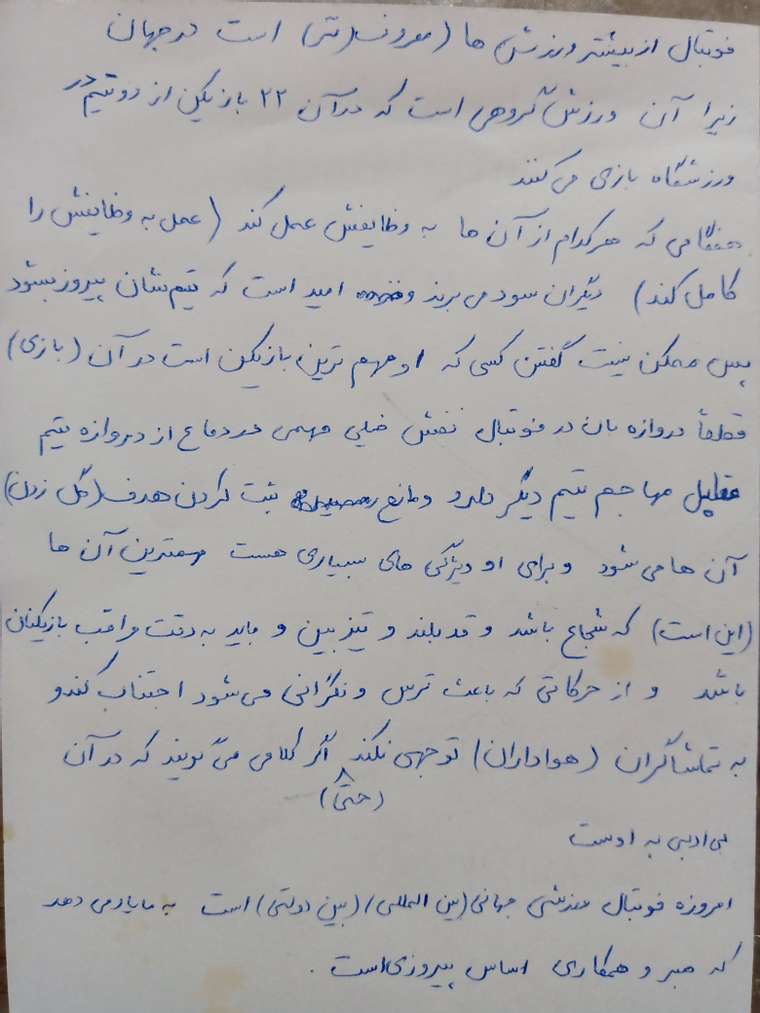 فوتبال از بیشتر ورزش ها (معروف (تر) است در جهان
زیرا آن ورزش گروهی است که در آن ۲۲ بازیکن از دو تیم در
ورزشگاه بازی می کنند
هنگامی که هر کدام از آن ها به وظایفش عمل کند (عمل به وظایفش را
کامل کند) دیگران سود می برند و امید است که تیم شان پیروز بشود
پس ممکن نیست گفتن کسی که او مهم ترین بازیکن است در آن (بازی)
قطعاً دروازه بان در فوتبال نقش خیلی مهمی در دفاع از دروازه تیم
مقابل مهاجم تیم دیگر دارد و مانع ثبت کردن هدف (گل زدن)
آن ها می شود و برای او ویژگی های بسیاری هست مهمترین آن ها
(این است) که شجاع باشد و قد بلند و تیز بین و باید به دقت مراقب بازیکنان
باشد و از حرکاتی که باعث ترس و نگرانی می شود اجتناب کند و
به تماشاگران (هواداران) توجهی نکند اگر کلامی می گویند که در آن
(حتی)
بی ادبی به اوست
امروزه فوتبال ورزشی جهانی (بین المللی) (بین دولتی) است به ما یاد می دهد
که صبر و همکاری اساس پیروزی است .